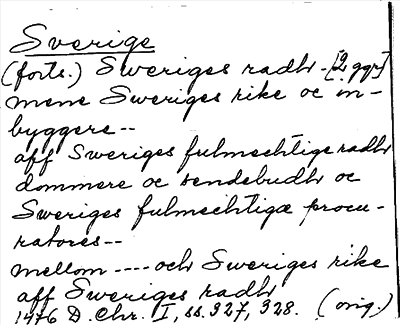 Sverige
(forts.) Sweriges radh - [2 ggr]
mene Sweriges rike oc in-
byggere --
aff Sweriges fulmechtige radh
dommere oc sendebudh oc
Sweriges fulmechtige procu-
ratores --
mellom ---- och Sweriges rike
aff Sweriges radh
1476 D. Chr. I, ss. 327, 328. (orig.)